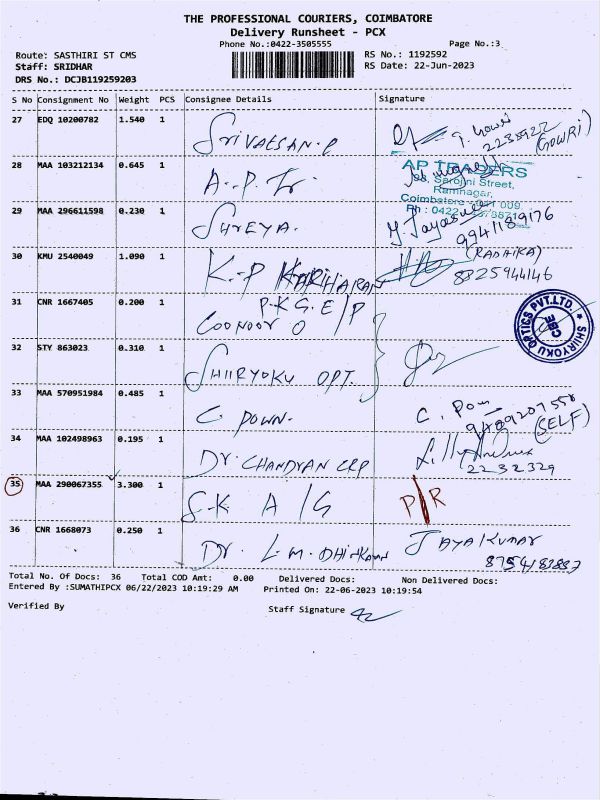 THE PROFESSIONAL COURIERS, COIMBATORE
Delivery Runsheet - PCX
Phone No.:0422-3505555 Page No.:3
Route: SASTHIRI ST CMS RS No.: 1192592
Staff: SRIDHAR RS Date: 22-Jun-2023
DRS No.: DCJB119259203
S No Consignment No Weight PCS Consignee Details Signature
27 EDQ 10200782 1.540 1 SRIVATSAN.P G. Gowri
2235922 (GOWRI)
28 MAA 103212134 0.645 1 A.P. Tr. AP TRADERS
Sarojini Street,
Ramnagar,
Coimbatore - 641 009.
Ph : 0422
29 MAA 296611598 0.230 1 SHREYA. 9941189176
30 KMU 2540049 1.090 1 K.P HARIHARAN (RADHIKA)
8825944146
31 CNR 1667405 0.200 1 P.K.G.E/P
COONOOR O
SHIIRYOKU OPTICS PVT.LTD. CBE
32 STY 863023 0.310 1 SHIIRYOKU OPT.
33 MAA 570951984 0.485 1 C. POWN. C. Pown
(SELF)
34 MAA 102498963 0.195 1 Dr. CHANDRAN
2232329
35 MAA 290067355 3.300 1 S.K A/G P/R
36 CNR 1668073 0.250 1 Dr. L.M. JAYAKUMAR
Total No. Of Docs: 36 Total COD Amt: 0.00 Delivered Docs: Non Delivered Docs:
Entered By :SUMATHIPCX 06/22/2023 10:19:29 AM Printed On: 22-06-2023 10:19:54
Verified By Staff Signature